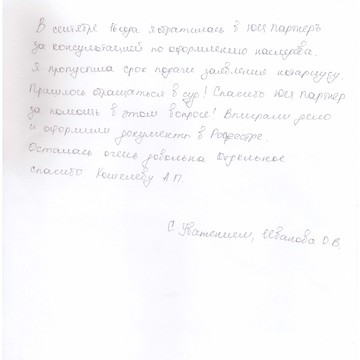 В сентябре 16 года я обратилась в Юка Партнеръ
за консультацией по оформлению наследства.
Я пропустила срок подачи заявления нотариусу.
Пришлось обращаться в суд! Спасибо Юка Партнер
за помощь в этом вопросе! Выиграли дело
и оформили документы в Росреестре.
Осталась очень довольна. Отдельное
спасибо Кошелеву А.П.
С Уважением, Иванова О.В.